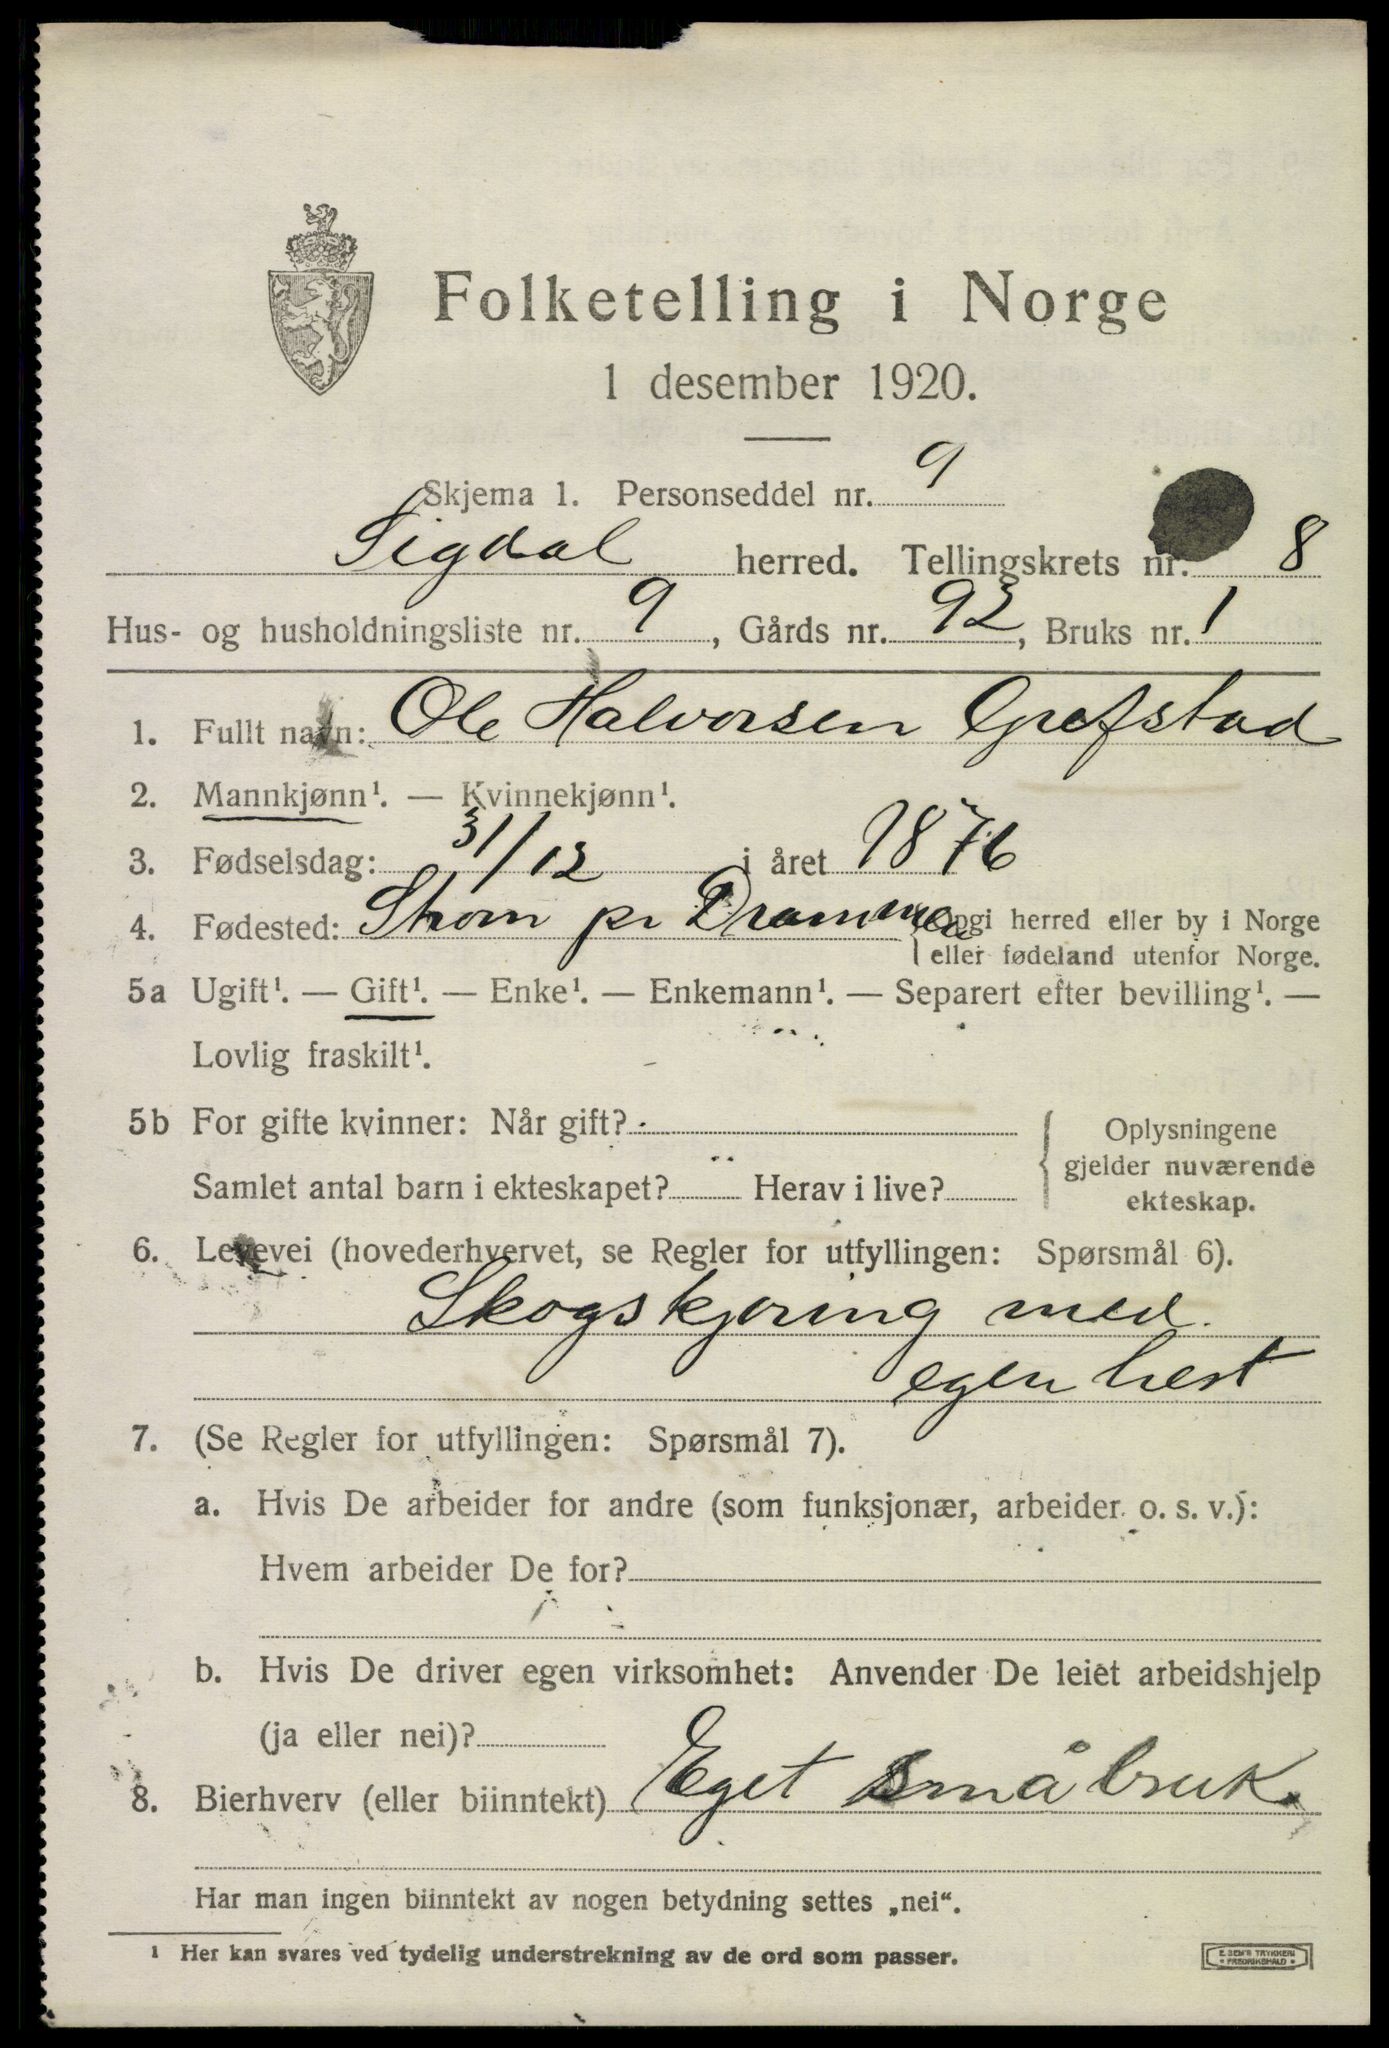 Folketelling i Norge
1 desember 1920.
Skjema 1. Personseddel nr. 9
Sigdal herred. Tellingskrets nr. 8
Hus- og husholdningsliste nr. 9, Gårds nr. 92, Bruks nr. 1
1. Fullt navn: Ole Halvorsen Grefstad
2. Mannkjønn¹. — Kvinnekjønn¹.
3. Fødselsdag: 31/12 i året 1876
4. Fødested: Strøm pr Drammen {Opgi herred eller by i Norge
eller fødeland utenfor Norge.
5a Ugift¹. — Gift¹. — Enke¹. — Enkemann¹. — Separert efter bevilling¹. —
Lovlig fraskilt¹.
5b For gifte kvinner: Når gift?
Samlet antal barn i ekteskapet? Herav i live?
Oplysningene
gjelder nuværende
ekteskap.
6. Levevei (hovederhvervet, se Regler for utfyllingen: Spørsmål 6).
Skogskjøring med
egen hest
7. (Se Regler for utfyllingen: Spørsmål 7).
a. Hvis De arbeider for andre (som funksjonær, arbeider o. s. v.):
Hvem arbeider De for?
b. Hvis De driver egen virksomhet: Anvender De leiet arbeidshjelp
(ja eller nei)?
8. Bierhverv (eller biinntekt) Eget småbruk.
Har man ingen biinntekt av nogen betydning settes „nei“.
¹ Her kan svares ved tydelig understrekning av de ord som passer.
E. SEM'S TRYKKERI
• FREDRIKSHALD •